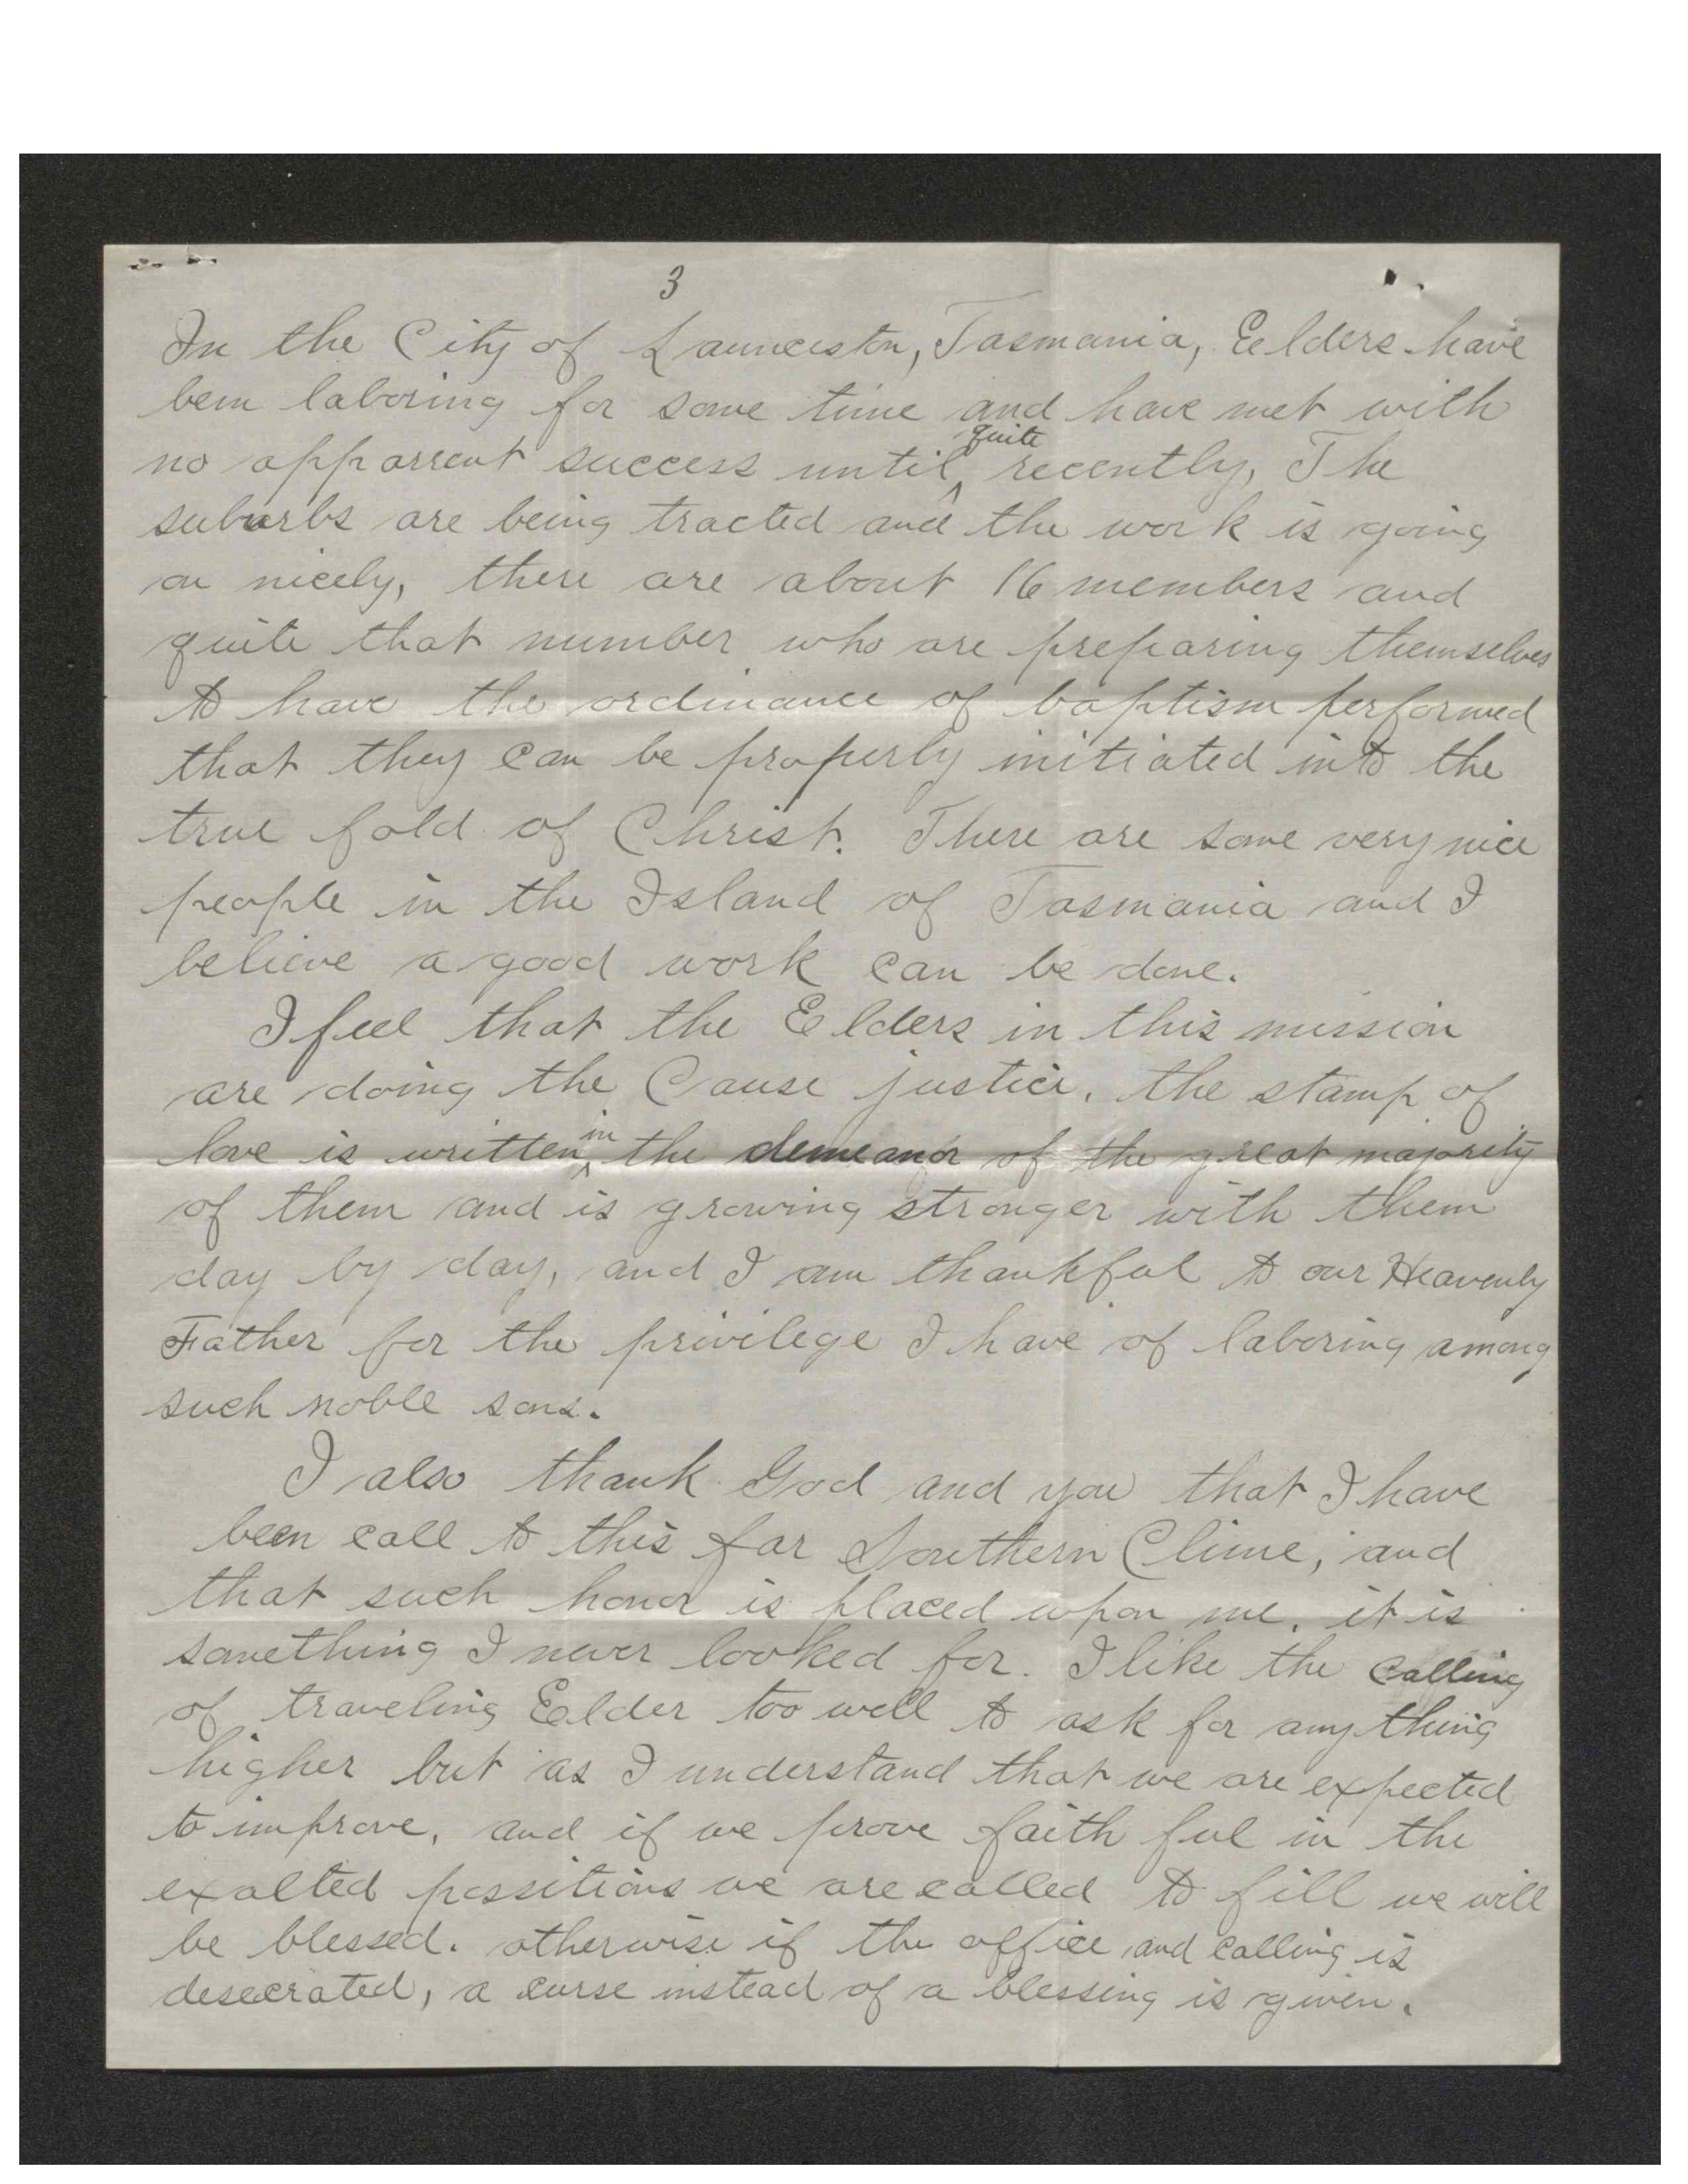 3
In the City of Launceston, Tasmania, Elders have
been laboring for some time and have met with
quite
no apparrent success until recently, The
suburbs are being tracted and the work is going
on nicely, there are about 16 members and
quite that number who are preparing themselves
to have the ordinance of baptism performed
that they can be properly initiated into the
true fold of Christ. There are some very nice
people in the Island of Tasmania and I
believe a good work can be done.
I feel that the Elders in this mission
are doing the Cause justice, the stamp of
in
love is written the demeanor of the great majority
of them and is growing stronger with them
day by day, and I am thankful to our Heavenly
Father for the privilege I have of laboring among
such noble sons.
I also thank God and you that I have
been call to this far Southern Clime, and
that such honor is placed upon me, it is
something I never looked for. I like the calling
of traveling Elder too well to ask for any thing
higher but as I understand that we are expected
to improve, and if we prove faith ful in the
exalted possitions we are called to fill we will
be blessed. otherwise if the office and calling is
desecrated, a curse instead of a blessing is given.